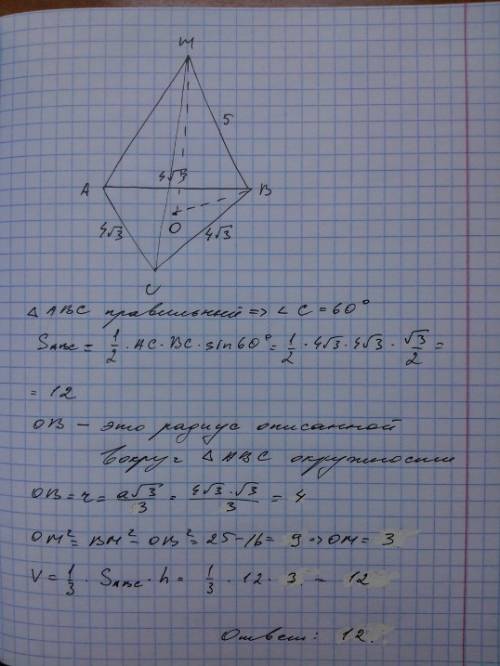 M
5
A
4√3
B
4√3
O
4√3
C
△ABC правильный => ∠C = 60°
S_ABC = 1/2 · AC · BC · sin60° = 1/2 · 4√3 · 4√3 · √3/2 =
= 12
OB – это радиус описанной
вокруг △ABC окружности
OB = r = a√3/3 = 4√3·√3/3 = 4
OM² = BM² - OB² = 25 - 16 = 9 => OM = 3
V = 1/3 · S_ABC · h = 1/3 · 12 · 3 = 12
Ответ: 12.